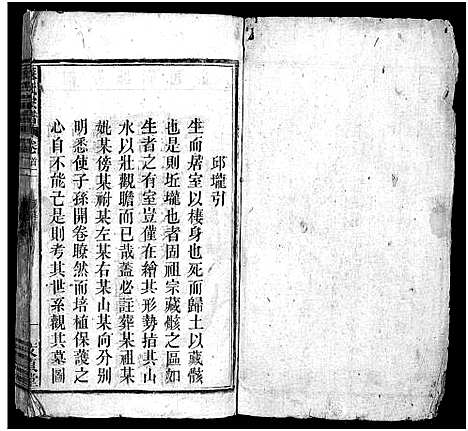 邱壠引
生而居室以棲身也死而歸土以藏骸
也是則坵壠也者固祖宗藏骸之區如
生者之有室豈僅在繪其形勢拮其山
水以壯觀瞻而已哉蓋必註葬某祖某
妣某傍某祔某左某右某山某向分別
明悉使子孫開卷瞭然而培植保護之
心自不能已是則考其世系觀其墓圖